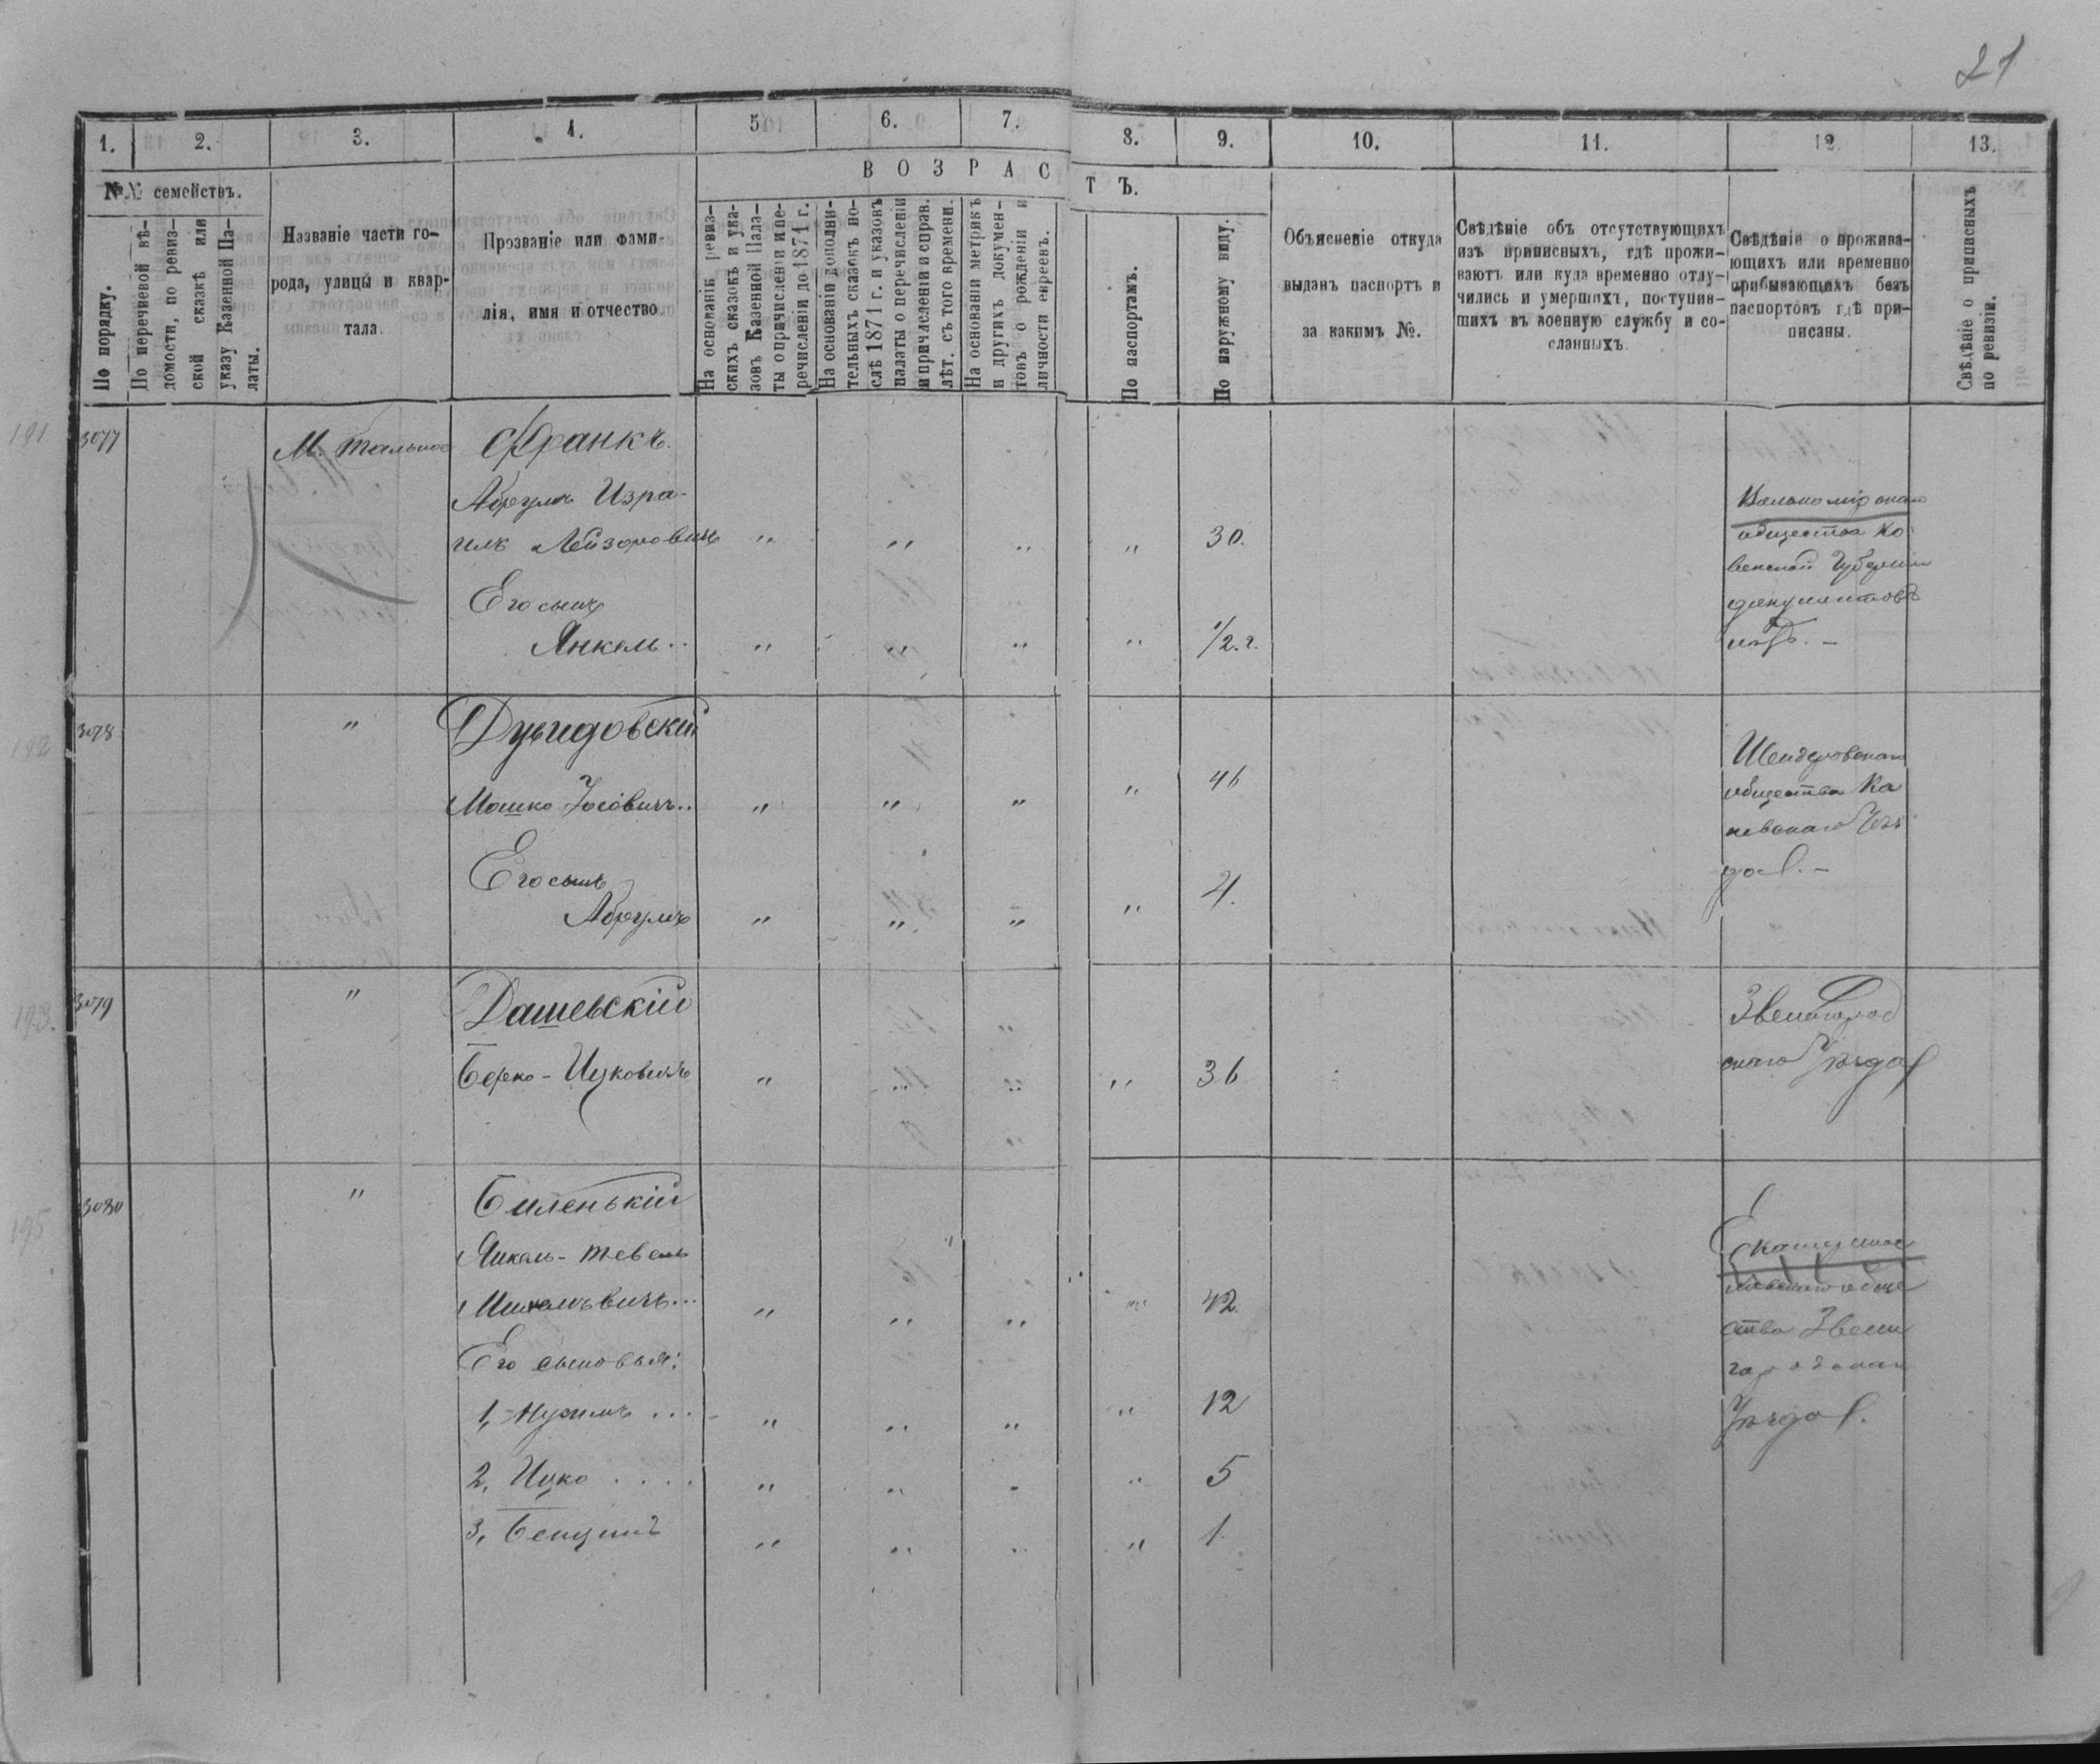 21
1.
2.
3.
4.
5.
6.
7.
8.
9.
10.
11.
12.
13.
№№ семействъ.
По порядку.
По перечневой вѣ-
домости, по ревиз-
ской сказкѣ или
указу Казенной Па-
латы.
Названіе части го-
рода, улицы и квар-
тала.
Прозваніе или фами-
лія, имя и отчество.
ВОЗРАСТЪ.
На основаніи ревиз-
скихъ сказокъ и ука-
зовъ Казенной Пала-
ты о причисленіи и пе-
речисленіи до 1871 г.
На основаніи дополни-
тельныхъ сказокъ по-
слѣ 1871 г. и указовъ
палаты о перечисленіи
и причисленіи и справ.
лѣт. съ того времени.
На основаніи метрикъ
и другихъ докумен-
товъ о рожденіи и
личности евреевъ.
По паспортамъ.
По наружному виду.
Объясненіе откуда
выданъ паспортъ и
за какимъ №.
Свѣдѣніе объ отсутствующихъ
изъ приписныхъ, гдѣ прожи-
ваютъ или куда временно отлу-
чились и умершихъ, поступив-
шихъ въ военную службу и со-
сланныхъ.
Свѣдѣніе о прожива-
ющихъ или временно
прибывающихъ безъ
паспортовъ гдѣ при-
писаны.
Свѣдѣніе о приписныхъ
по ревизіи.
191
3077
М. Тальное
Франкъ.
Абрумъ Изра-
иль Лейзоровичъ " " " " 30.
Его сынъ
Янкель.. " " " " 1/2.г.
Вилькомірскаго
общества Ко
венской Губерніи
документовъ
нѣтъ. –
192
3078
"
Мошко Іосіовичъ.. " " " " 46
Его сынъ
Абрумъ " " " " 4.
общества Ка
невскаго Уѣз
да. –
193.
3079
"
Дашевскій
Берко - Ицковичъ " " " " 36
Звенигород
скаго Уѣзда
195
3080
"
Биленькій
Янкель - Тевель
" " " " 42.
Его сыновья:
1, Нухимъ ... " " " " 12
2, Ицко .... " " " " 5
3, Бенцинъ " " " " 1.
Екатерино
польскаго обще
ства Звени
городскаго
Уѣзда.